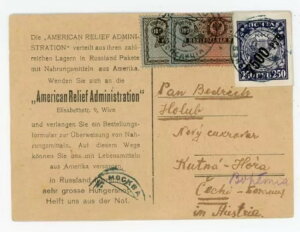 Die „AMERICAN RELIEF ADMINI-
STRATION" verteilt aus ihren zahl-
reichen Lagern in Russland Pakete
mit Nahrungsmitteln aus Amerika.
Wenden Sie sich an die
„American Relief Administration"
Elisabethstr. 9, Wien
und verlangen Sie ein Bestellungs-
formular zur Überweisung von Nah-
rungsmitteln. Auf diesem Wege
können Sie uns Lebensmitteln
aus Amerika versorgen
in Russland
sehr grosse Hungersnot
Helft uns aus der Not.
МОСКВА
250 РУБ 250
Pan Bedřich
Holub
Nový
Kutná-Hora
Bohemia
Čechi
in Austria